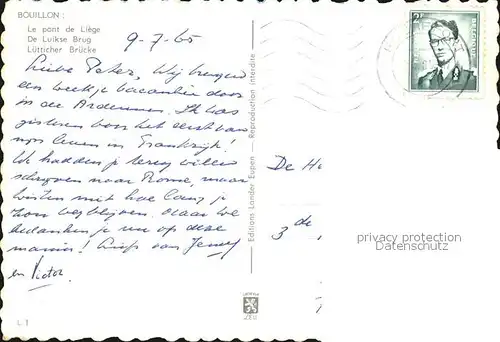 BOUILLON :
Le pont de Liège
De Luikse Brug
Lütticher Brücke
9-7-65
Lieve Pater, Wij brengen
een weekje vacantie door
in de Ardennen. Ik was
gisteren voor het eerst van
mijn leven in Frankrijk!
We hadden je terug willen
schrijven naar Rome, maar
wisten niet hoe lang je
zou wegblijven. Maar we
bedanken je nu op deze
manier! Liefs van Jenny
en Victor.
Editions Lander Eupen — Reproduction interdite
De He
3de
privacy protection
Datenschutz
L 1